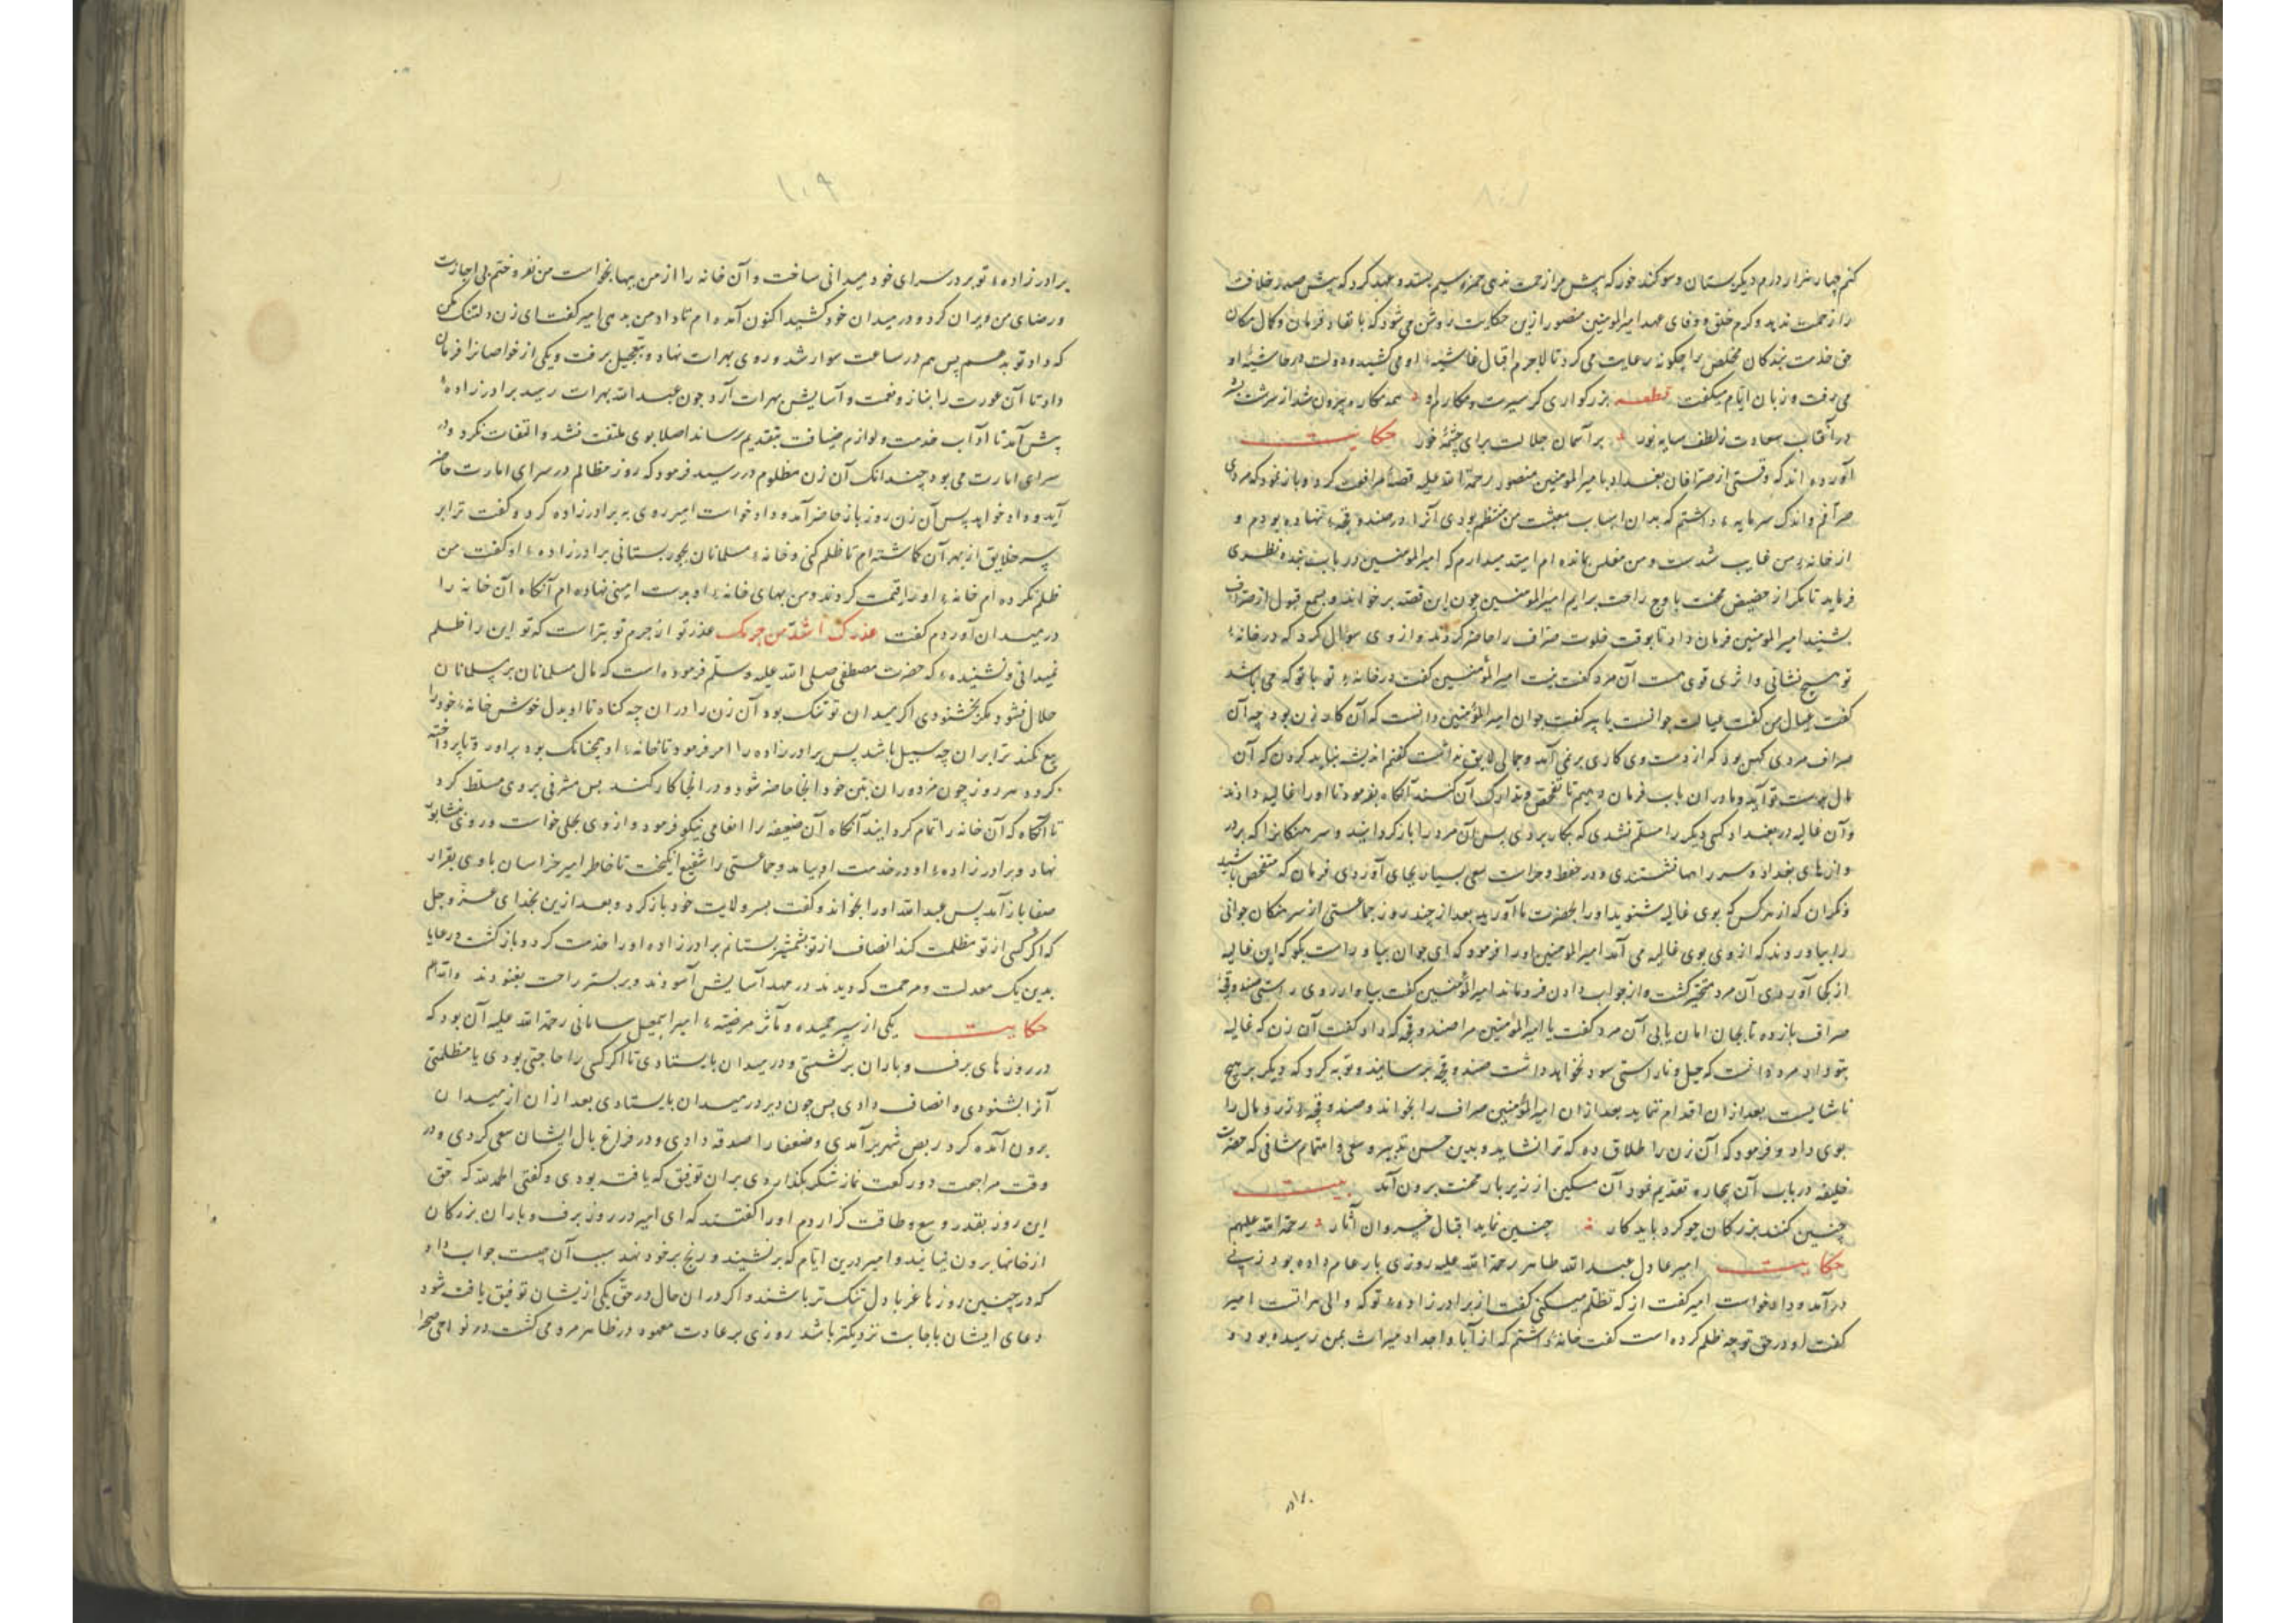 کنم چهار هزار درم دیگر بستان و سوکند خور که پیش مرا زحمت ندهی حمزه سیم بستد و عهد کرد که پیش صدر خلافت
را زحمت ندهد و کرم خلق و وفای عهد امیرالمومنین منصور ازین حکایت روشن می شود که با نفاد فرمان و کمال مکان
حق خدمت بندکان مخلص را چکونه رعایت می کرد تا لاجرم اقبال غاشیهٔ او می کشید و دولت در حاشیهٔ او
می رفت و زبان ایام میکفت قطعه بزرکواری کز سیرت و مکارم او همه مکاره بیرون شد از سرشت بشر
در آفتاب سعادت ز لطف سایه نور بر آسمان جلالت برای چشمهٔ خور حکایت
آورده اند که وقتی از صرافان بغداد بامیرالمومنین منصور رحمة الله علیه قصهٔ مرافعت کرد و باز نمود که مردی
صرافم و اندک سرمایهٔ داشتم که بدان اسباب معیشت من منتظم بودی آنرا در صندوقچهٔ نهاده بودم و
از خانهٔ من غایب شدست و من مفلس بمانده ام امید میدارم که امیرالمومنین در باب بنده نظری
فرماید تا مکر از حضیض محنت باوج راحت برایم امیرالمومنین چون این قصه بر خواند و بسمع قبول از صراف
بشنید امیرالمومنین فرمان داد تا بوقت خلوت صراف را حاضر کردند و از وی سوال کرد که در خانهٔ
تو هیچ نشانی و اثری قوی هست آن مرد کفت نیست امیرالمؤمنین کفت در خانهٔ تو با تو که می باشد
کفت عیال من کفت عیالت جوانست یا پیر کفت جوان امیرالمؤمنین دانست که آن کار زن بود چه آن
صراف مردی کهن بود که از دست وی کاری برنمی آمد و جمالی لایق نداشت کفتم اندیشه نباید کردن که آن
مال بدست تو آید و ما دران باب فرمان دهیم تا تفحص و تدارک آن کنند آنکاه بفرمود تا او را غالیه دادند
و آن غالیه در بغداد کسی دیکر را مسلم نشدی که بکار بردی پس آن مرد را باز کردانید و سرهنکانرا که بر در
وازهای بغداد و سر راهها نشستندی و در حفظ و حراست سعی بسیار بجای آوردی فرمان که متفحص باشید
و نکران که از هر کس که بوی غالیه شنوید او را بحضرت ما آورید بعد از چند روز جماعتی از سرهنکان جوانی
را بیاوردند که از وی بوی غالیه می آمد امیرالمومنین او را فرمود که ای جوان بیا و راست بکو که این غالیه
از کجا آوردی آن مرد متحیر کشت و از جواب دادن فروماند امیرالمؤمنین کفت بیا و از روی راستی صندوقچهٔ
صراف بازده تا بجان امان یابی آن مرد کفت یا امیرالمؤمنین مرا صندوقچه که داد کفت آن زن که غالیه
بتو داد مرد دانست که حیل و ناراستی سود نخواهد داشت صندوقچه برسانید و توبه کرد که دیکر بر هیچ
ناشایست بعد ازان اقدام ننماید بعد ازان امیرالمؤمنین صراف را بخواند و صندوقچهٔ زر و مال را
بوی داد و فرمود که آن زن را طلاق ده که ترا نشاید و بدین حسن تدبیر و سعی و اهتمام شافی که حضرت
خلیفه در باب آن بیچاره تقدیم نمود آن مسکین از زیر بار محنت برون آمد بیت
چنین کنند بزرکان چو کرد باید کار چنین نماید اقبال خسروان آثار رحمة الله علیهم
حکایت امیر عادل عبدالله طاهر رحمة الله علیه روزی بار عام داده بود زنی
درآمد و دادخواست امیر کفت از که تظلم میکنی کفت از برادرزادهٔ تو که والی هراتست امیر
کفت او در حق تو چه ظلم کرده است کفت خانهٔ داشتم که از آبا و اجداد میراث بمن رسیده بود و
۱۰۹
برادرزادهٔ تو بر در سرای خود میدانی ساخت و آن خانه را از من ببها بخواست من نفروختم بی اجازت
و رضای من ویران کرد و در میدان خود کشید اکنون آمده ام تا داد من بدهی امیر کفت ای زن دلتنک مکن
که داد تو بدهم پس هم در ساعت سوار شد و روی بهرات نهاد و بتعجیل برفت و یکی از خواصانرا فرمان
داد تا آن عورت را بناز و نعمت و آسایش بهرات آرد چون عبدالله بهرات رسید برادرزادهٔ
پیش آمد تا آداب خدمت و لوازم ضیافت بتقدیم رساند اصلا بوی ملتفت نشد و التفات نکرد و در
سرای امارت می بود چندانک آن زن مظلوم در رسید فرمود که روز مظالم در سرای امارت حاضر
آید و داد خواهد پس آن زن روز بار حاضر آمد و داد خواست امیر روی به برادرزاده کرد و کفت ترا بر
سر خلایق از بهر آن کاشته ام تا ظلم کنی و خانهٔ مسلمانان بجور بستانی برادرزادهٔ او کفت من
ظلم نکرده ام خانهٔ او را قیمت کردند و من بهای خانهٔ او بدست امینی نهاده ام آنکاه آن خانه را
در میدان آوردم کفت عذرک اشد من جرمک عذر تو از جرم تو بتر است که تو این را ظلم
نمیدانی و نشنیدهٔ که حضرت مصطفی صلی الله علیه وسلم فرموده است که مال مسلمانان بر مسلمانان
حلال نشود مکر بخشنودی اکر میدان تو تنک بود آن زن را دران چه کناه تا او بدل خوش خانهٔ خود را
بیع نکند ترا بران چه سبیل باشد پس برادرزاده را امر فرمود تا خانهٔ او همچنانک بود برآورد تا پرداخته
کردد هر روز چون مزدوران بتن خود آنجا حاضر شود و در آنجا کار کند پس مشرفی بر وی مسلط کرد
تا آنکاه که آن خانه را تمام کردانید آنکاه آن ضعیفه را انعامی نیکو فرمود و از وی بحلی خواست و روی بنشابور
نهاد و برادرزادهٔ او در خدمت او بیامد و جماعتی را شفیع انکیخت تا خاطر امیر خراسان با وی بقرار
صفا باز آمد پس عبدالله او را بخواند و کفت بسر ولایت خود باز کرد و بعد ازین بخدای عز و جل
که اکر کسی از تو مظلمت کند انصاف از تو بشمشیر بستانم برادرزاده او را خدمت کرد و باز کشت و رعایا
بدین یک معدلت و مرحمت که دیدند در مهد آسایش آسودند و بر بستر راحت بغنودند والله اعلم
حکایت یکی از سیر حمیده و مآثر مرضیهٔ امیر اسمعیل سامانی رحمة الله علیه آن بود که
در روزهای برف و باران برنشستی و در میدان بایستادی تا اکر کسی را حاجتی بودی یا مظلمتی
آنرا بشنودی و انصاف دادی پس چون دیر در میدان بایستادی بعد ازان از میدان
برون آمده کرد ربض شهر برآمدی و ضعفا را صدقه دادی و در فراغ بال ایشان سعی کردی و در
وقت مراجعت دو رکعت نماز شکر بکذاردی بران توفیق که یافته بودی و کفتی الحمد لله که حق
این روز بقدر وسع و طاقت کزاردم او را کفتند که ای امیر در روز برف و باران بزرکان
از خانها برون نیایند و امیر درین ایام که برنشیند و رنج بر خود نهد سبب آن چیست جواب داد
که در چنین روزها غربا دل تنک تر باشند و اکر دران حال در حق یکی ازیشان توفیق یافته شود
دعای ایشان باجابت نزدیکتر باشد روزی بر عادت معهود در ظاهر مرو می کشت در نواحی صحرا